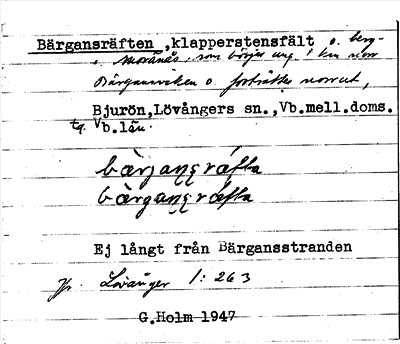 Bärgansräften, klapperstensfält o. berg-
moränås, som börjar ung. 1 km norr
Bärgansviken o. fortsätter norrut,
Bjurön, Lövångers sn., Vb.mell.doms.
tg. Vb.län.
Ej långt från Bärgansstranden
Jfr Lövånger 1: 263
G.Holm 1947